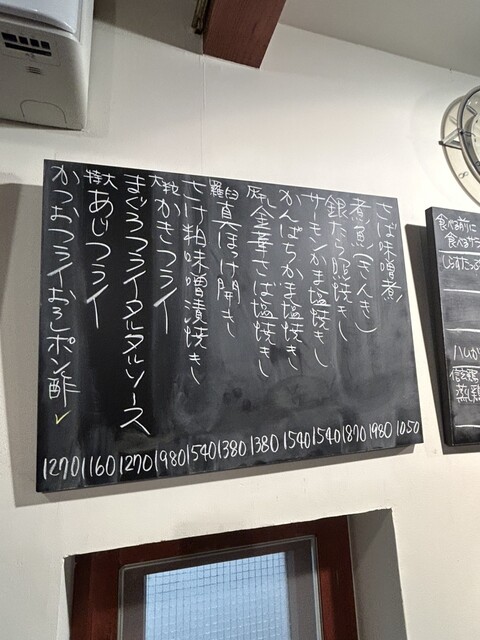 さば味噌煮 1050
煮魚(きんき) 1980
銀だら照焼き 1870
サーモンかま塩焼き 1540
かんぱちかま塩焼き 1540
灰干し金華さば塩焼き 1380
羅臼真ほっけ開き 1380
さけ粕味噌漬焼き 1540
大粒かきフライ 1980
まぐろフライタルタルソース 1270
特大あじフライ 1160
かつおフライおろしポン酢 1270
食べる前に
食べるサラ
しらすたっぷ
信玄鶏